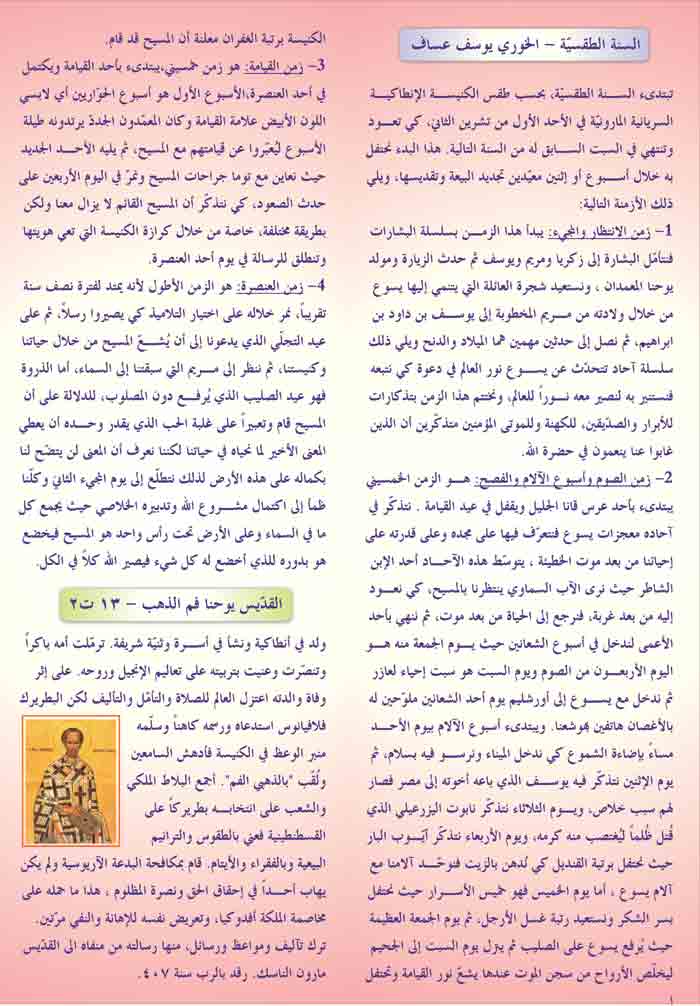 السنة الطقسيّة – الخوري يوسف عساف
تبتدىء السـنة الطقسيّة، بحسب طقس الكنيسـة الإنطاكيـة
السريانية المارونيّة في الأحد الأول من تشرين الثاني، كي تعـود
وتنتهي في السبت السـابق له من السنة التالية. هذا البدء نحتفل
به خلال أسـبوع أو إثنين معيّدين تجديد البيعة وتقديسها، ويلي
ذلك الأزمنة التالية:
1– زمن الانتظار والمجيء: يبدأ هذا الزمـن بسلسلة البشارات
فنتأمّل البشارة إلى زكريا ومريم ويوسف ثم حدث الزيارة ومولد
يوحنا المعمدان ، ونستعيد شجرة العائلة التي ينتمي إليها يسوع
من خلال ولادته من مـريم المخطوبة إلى يوسـف بن داود بن
ابراهيم، ثم نصل إلى حدثين مهمين هما الميلاد والدنح ويلي ذلك
سلسلة آحاد تتحدّث عن يسـوع نور العالم في دعوة كي نتبعه
فنستنير به لنصير معه نـوراً للعالم، ونختتم هذا الزمن بتذكارات
للأبرار والصدّيقين، للكهنة وللموتى المؤمنين متذكّرين أن الذين
غابوا عنا ينعمون في حضرة الله.
2– زمن الصوم وأسبوع الآلام والفصح: هـو الزمن الخمسيني
يبتدىء بأحد عرس قانا الجليل ويقفل في عيد القيامة . نتذكّر في
آحاده معجزات يسوع فنتعرّف فيها على مجده وعلى قدرته على
إحيائنا من بعد موت الخطيئة ، يتوسّط هذه الآحـاد أحد الإبن
الشاطر حيث نرى الآب السماوي ينتظرنا بالمسيح، كي نعـود
إليه من بعد غربة، فنرجع إلى الحياة من بعد موت، ثم ننهي بأحد
الأعمى لندخل في أسبوع الشعانين حيث يـوم الجمعة منه هـو
اليوم الأربعـون من الصوم ويوم السبت هو سبت إحياء لعازر
ثم ندخل مع يسـوع إلى أورشليم يوم أحد الشعانين ملوّحين له
بالأغصان هاتفين بهوشعنا. ويبتدىء أسبوع الآلام بيوم الأحـد
مساءً بإضاءة الشموع كي ندخل الميناء ونرسـو فيه بسلام، ثم
يوم الإثنين نتذكّر فيه يوسـف الذي باعه أخوته إلى مصر فصار
لهم سبب خلاص، ويـوم الثلاثاء نتذكّر نابوت اليزرعيلي الذي
قُتل ظُلماً ليُغتصب منه كرمه، ويوم الأربعاء نتذكّر أيّـوب البار
حيث نحتفل برتبة القنديل كي نُدهن بالزيت فنوحّـد آلامنا مع
آلام يسوع ، أما يوم الخميس فهو خميس الأسرار حيث نحتفل
بسر الشكر ونستعيد رتبة غسل الأرجل، ثم يوم الجمعة العظيمة
حيث يُرفع يسوع على الصليب ثم ينزل يوم السبت إلى الجحيم
ليخلّص الأرواح من سجن الموت عندها يشعّ نور القيامة ونحتفل
الكنيسة برتبة الغفران معلنة أن المسيح قد قام.
3– زمن القيامة: هو زمن خمسيني،يبتدىء بأحد القيامة ويكتمل
في أحد العنصرة،الأسبوع الأول هو أسبوع الحوّاريين أي لابسي
اللون الأبيض علامة القيامة وكان المعمّدون الجددّ يرتدونه طيلة
الأسبوع ليُعبّروا عن قيامتهم مع المسيح، ثم يليه الأحـد الجديد
حيث نعاين مع توما جراحات المسيح ونمرّ في اليوم الأربعين على
حدث الصعود، كي نتذكّـر أن المسيح القائم لا يزال معنا ولكن
بطريقة مختلفة، خاصة من خلال كرازة الكنيسة التي تعي هويتها
وتنطلق للرسالة في يوم أحد العنصرة.
4– زمن العنصرة: هو الزمن الأطول لأنه يمتد لفترة نصف سنة
تقريباً، نمر خلاله على اختيار التلاميذ كي يصيروا رسلاً، ثم على
عيد التجلّي الذي يدعونا إلى أن يُشـعّ المسيح من خلال حياتنا
وكنيستنا، ثم ننظر إلى مـريم التي سبقتنا إلى السماء، أما الذروة
فهو عيد الصليب الذي يُرفـع دون المصلوب، للدلالة على أن
المسيح قام وتعبيراً على غلبة الحب الذي يقدر وحـده أن يعطي
المعنى الأخير لما نحياه في حياتنا لكننا نعرف أن المعنى لن يتضح لنا
بكماله على هذه الأرض لذلك نتطلّع إلى يوم المجيء الثاني وكلّنا
ظمأ إلى اكتمال مشـروع الله وتدبيره الخلاصي حيث يجمع كل
ما في السماء وعلى الأرض تحت رأس واحد هو المسيح فيخضع
هو بدوره للذي أخضع له كل شيء فيصير الله كلاً في الكل.
القدّيس يوحنا فم الذهب – ١٣ ت٢
ولد في أنطاكية ونشأ في أسـرة وثنيّة شريفة. ترمّلت أمه باكراً
وتنصّرت وعنيت بتربيته على تعاليم الإنجيل وروحه. على إثر
وفاة والدته اعتزل العالم للصلاة والتأمّل والتأليف لكن البطريرك
فلافيانوس استدعاه ورسمه كاهناً وسلّمه
منبر الوعظ في الكنيسة فأدهش السامعين
ولُقّب "بالذهبي الفم". أجمع البلاط الملكي
والشعب على انتخابـه بطريركاً على
القسطنطينية فعني بالطقوس والترانيم
البيعية وبالفقراء والأيتام. قام بمكافحة البدعة الآريوسية ولم يكن
يهاب أحـداً في إحقاق الحق ونصرة المظلوم ، هذا ما حمله على
مخاصمة الملكة أفدوكيا، وتعريض نفسه للإهانة والنفي مرّتين.
ترك تآليف ومواعظ ورسائل، منها رسالته من منفاه الى القدّيس
مارون الناسك. رقد بالرب سنة ٤٠٧.